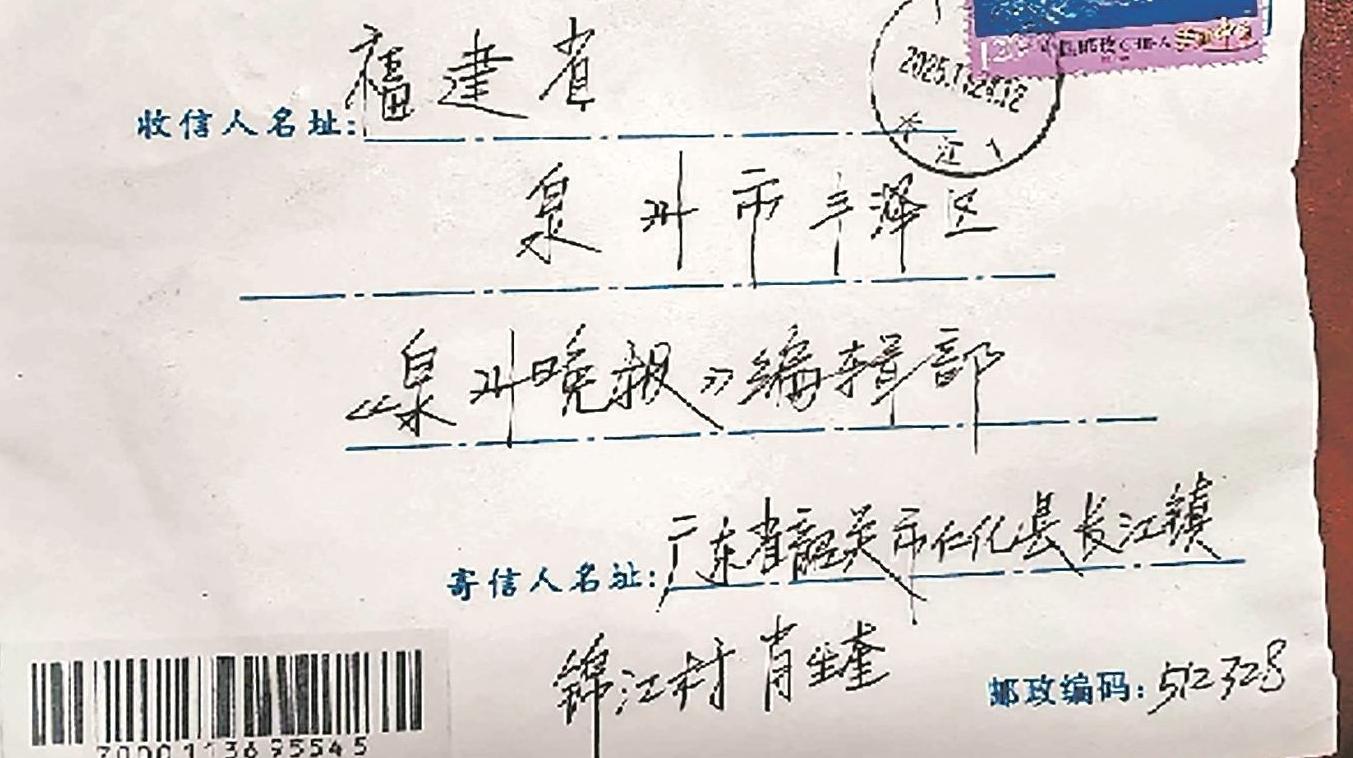 福建省
收信人名址:
泉州市丰泽区
《泉州晚报》编辑部
寄信人名址: 广东省韶关市仁化县长江镇
锦江村 肖生奎
邮政编码: 512328
中国邮政 CHINA
江